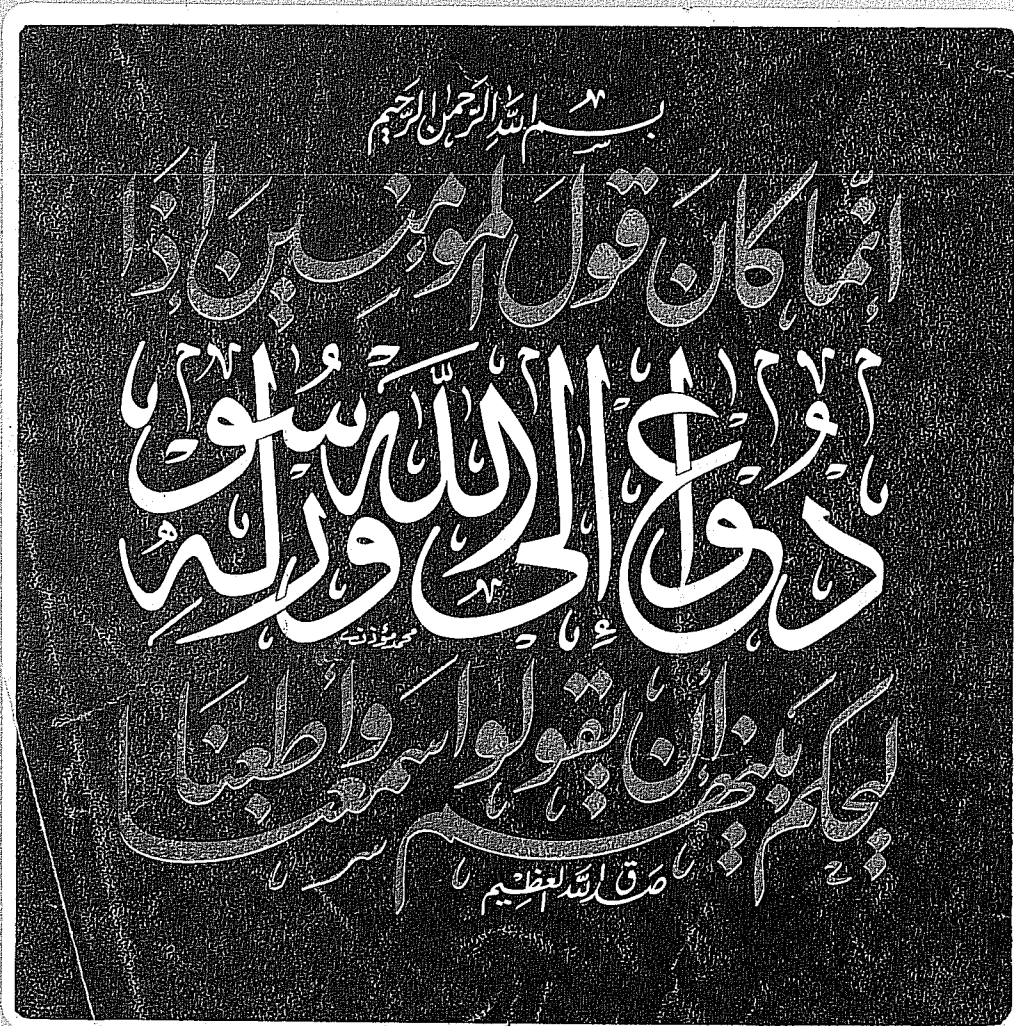 بسم الله الرحمن الرحيم
انما كان قول المومنين إذا
دعوا إلى الله ورسوله
ليحكم بينهم أن يقولوا سمعنا وأطعنا
صدق الله العظيم